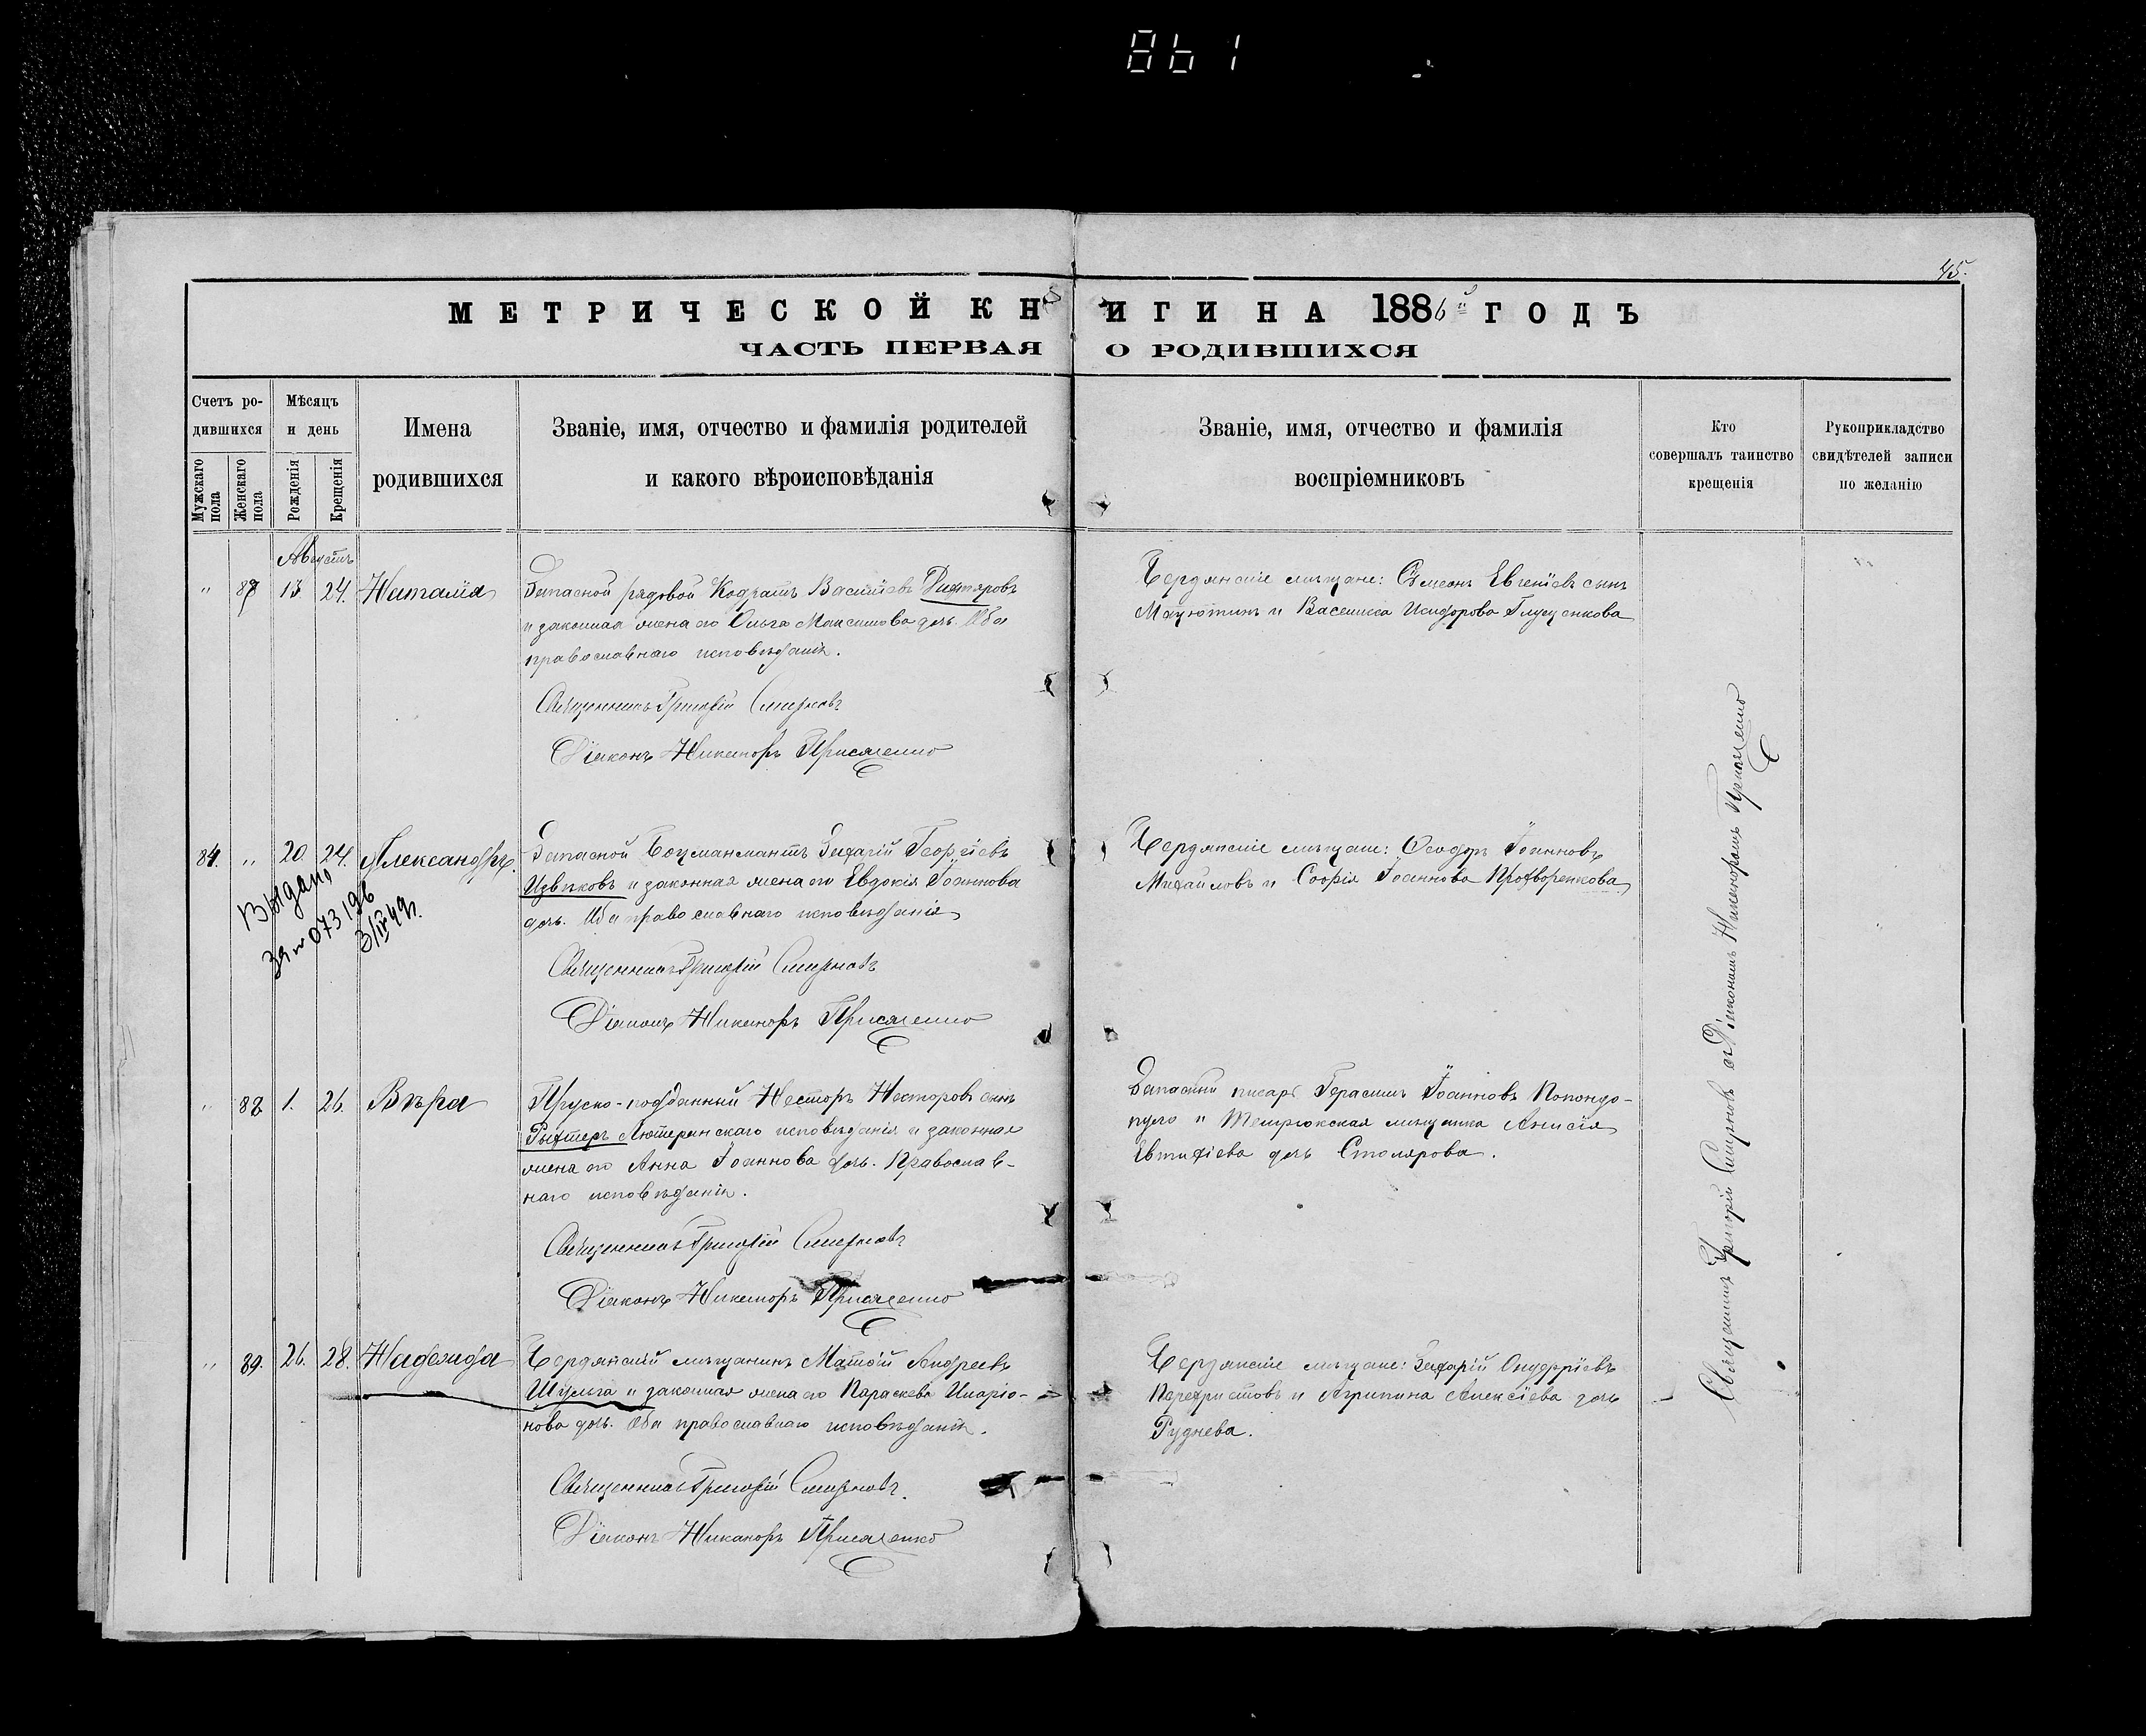 861
45.
МЕТРИЧЕСКОЙ КНИГИ НА 1886й ГОДЪ
ЧАСТЬ ПЕРВАЯ О РОДИВШИХСЯ
Счетъ ро-
дившихся
Мужскаго пола
Женскаго пола
Мѣсяцъ
и день
Рожденія
Крещенія
Имена
родившихся
Званіе, имя, отчество и фамилія родителей
и какого вѣроисповѣданія
Званіе, имя, отчество и фамилія
воспріемниковъ
Кто
совершалъ таинство
крещенія
Рукоприкладство
свидѣтелей записи
по желанію
Августъ
" 87 13. 24. Наталія
Запасной рядовой Кодратъ Василіевъ
и законная жена его Ольга Максимова дочь. Оба
православнаго исповѣданія.
Священникъ Григорій Смирновъ
Діаконъ Никаноръ Присяженко
Бердянскіе мѣщане: Сѵмеонъ Евгеніевъ сынъ
и Василиса Исидорова Глущенкова
84. " 20. 24. Александръ.
Запасной Боцманматъ Захарій Георгіевъ
Извѣковъ и законная жена его Евдокія Іоаннова
дочь. Оба православнаго исповѣданія
Священникъ Григорій Смирновъ
Діаконъ Никаноръ Присяженко
Бердянскіе мѣщане: Ѳеодоръ Іоанновъ
Михайловъ и Софія Іоаннова
Выдано
073196
3/IV 49г.
" 88 1. 26. Вѣра
Пруско-подданный Несторъ Несторовъ сынъ
Рыхтеръ Лютеранскаго исповѣданія и законная
жена его Анна Іоаннова дочь. Православ-
наго исповѣданія.
Священникъ Григорій Смирновъ
Діаконъ Никаноръ Присяженко
Запасный писарь Герасимъ Іоанновъ Попондо-
пуло и Темрюкская мѣщанка Анисія
Евтихіева дочь Столярова.
" 89. 26. 28. Надежда
Бердянскій мѣщанинъ Матѳій Андреевъ
Шульга и законная жена его Параскева Иларіо-
нова дочь. Оба православнаго исповѣданія.
Священникъ Григорій Смирновъ.
Діаконъ Никаноръ Присяженко
Бердянскіе мѣщане: Захарій Онуфріевъ
и Агрипина Алексіева дочь
Руднева.
Священникъ Григорій Смирновъ съ Діакономъ Никаноромъ Присяженко